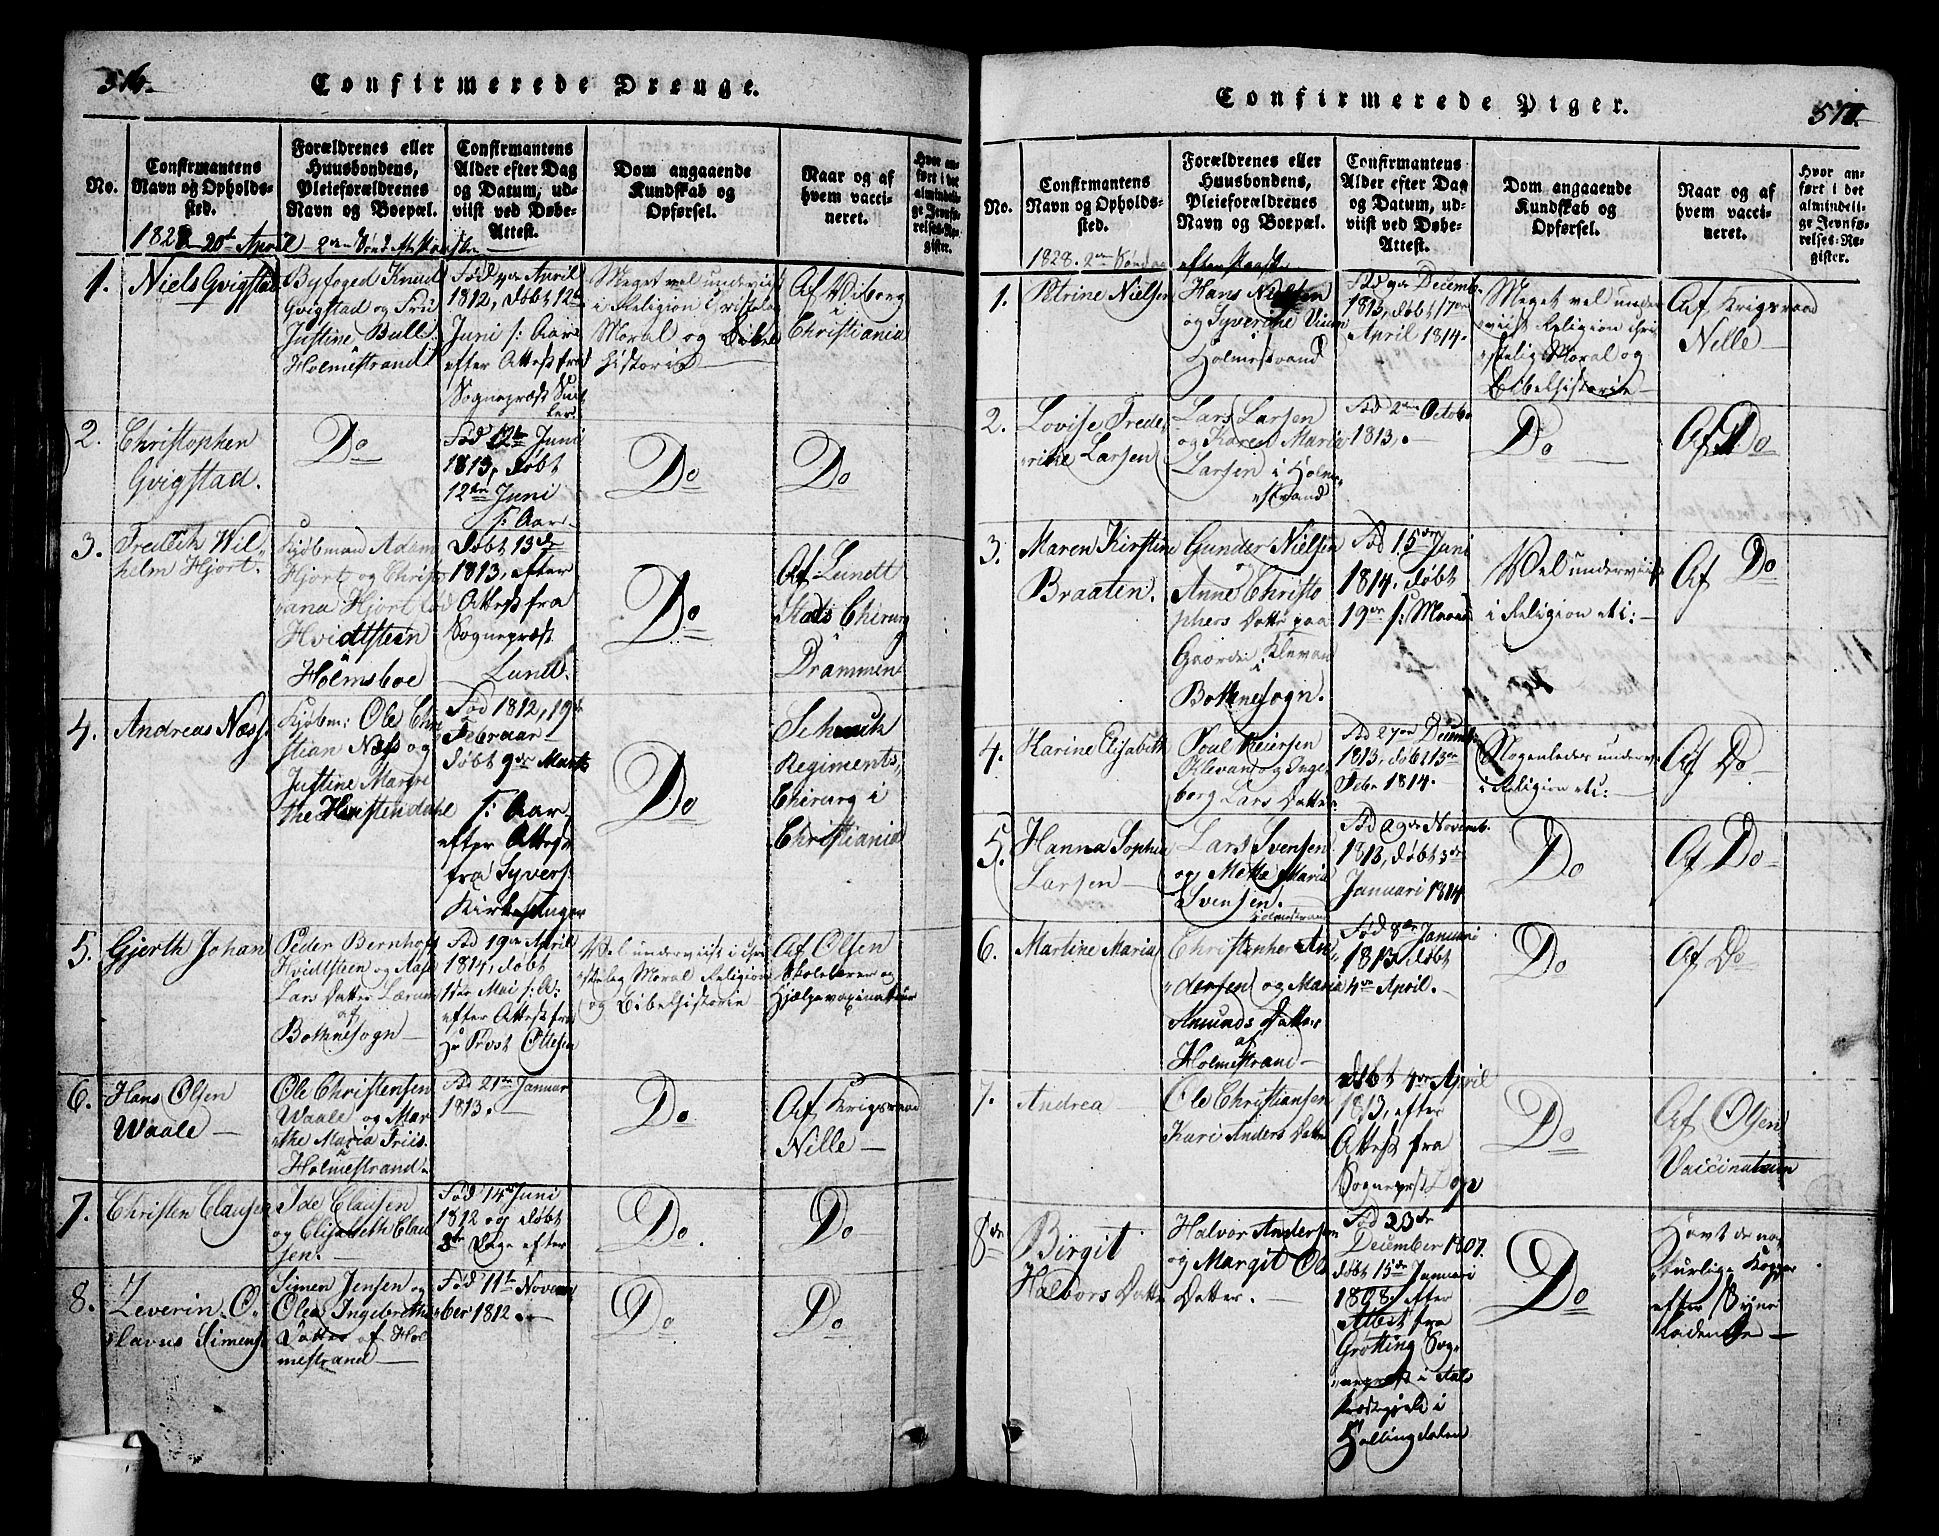 516.
Confirmerede Drenge.
No.
Confirmantens
Navn og Opholds-
sted.
Forældrenes eller
Huusbondens,
Pleieforældrenes
Navn og Boepæl.
Confirmantens
Alder efter Dag
og Datum, ud-
viist ved Døbe-
Attest.
Dom angaaende
Kundskab og
Opførsel.
Naar og af
hvem vacci-
neret.
Hvor an-
ført i det
almindeli-
ge Jevnfø-
relses-Re-
gister.
1828 20de April 2den Sønd eft. Paaske
1. Niels Gvigstad
Byfoged Knud
Gvigstad og Fru
Justine Bull
Holmestrand
Fød 4de April
1812, døbt 12te
Juni s: Aar
efter Attest fra
Sognepræst
Meget vel underviist
i Religion Christelig
Moral og Bibel
historie
Af Wiborg
i
Christiania
2. Christopher
Gvigstad.
Do
Fød 12te Juni
1813, døbt
12te Juni
s: Aar
Do
Do
3. Fredrik Wil-
helm Hjort.
Kjøbmand Adam
Hjort og Christi
ana Hjort fød
Hvidtsteen
Holmsboe
Døbt 13de
1813, efter
Attest fra
Sognepræst
Lund.
Do
Af Lundt
Stads Chirurg
i
Drammen
4. Andreas Næss
Kjøbm: Ole Chri
stian Næss og
Justine Margre
the Horstendahl
Fød 1812, 19de
Februar
døbt 9de Marts
s: Aar,
efter Attest
fra Syvers
Kirkesanger
Do
Schenck
Regiments-
Chirurg i
Christiania
5. Gjerth Johan
Peder Bernhoft
Hvidtsteen og
Lars Datter Lærum
af
Botnesogn
Fød 19de April
1814, døbt
1ste Mai s: A:
efter Attest fra
Hr Provst Ottesen
Vel underviist i chri
stelig Moral Religion
og Bibelhistorie
Af Olsen
Skolelærer og
Hjælpevaxinateur
6. Hans Olsen
Waale
Ole Christensen
Waale og Mar
the Maria Friis
Holmestrand.
Fød 21de Januar
1813.
Do
Af Krigsraad
Nille
7. Christen Clausen
Ide Clausen
og Elisabeth Clau
sen.
Fød 14de Juni
1812 og døbt
8te Dage efter
Do
Do
8. Zeverin O.
lavus Simens
Simen Jensen og
Olea Ingebrethe
Datter af Hol
mestrand
Fød 11te Novem
ber 1812.
Do
Do
517.
Confirmerede Piger.
No.
Confirmantens
Navn og Opholds-
sted.
Forældrenes eller
Huusbondens,
Pleieforældrenes
Navn og Boepæl.
Confirmantens
Alder efter Dag
og Datum, ud-
viist ved Døbe-
Attest.
Dom angaaende
Kundskab og
Opførsel.
Naar og af
hvem vacci-
neret.
Hvor an-
ført i det
almindeli-
ge Jevnfø-
relses-Re-
gister.
1828. 2den Søndag efter Paaske
1. Petrine Nielsen
Hans Nielsen
og Syverine
Holmestrand
Fød 9de Decemb.
1813, døbt 17de
April 1814.
Meget vel under
viist Religion chri
stelig Moral og
Bibelhistorie
Af Krigsraad
Nille
2. Lovise Frede
rikke Larsen
Lars Larsen
og Karen Maria
Larsen i Holme
strand
Fød 2den Octobr
1813.
Do
Af Do
3. Maren Kirstine
Braaten.
Gunder Nielsen
og
Anne Christo
phers Datter paa
Gaarden Klevan
i
Botnesogn.
Fød 15de Juni
1814, døbt
19de s: Maaned
Vel underviist
i Religion etc:
Af Do
4. Karine Elisabeth
Poul Peiersen
Klevan og Inge
borg Lars Datter.
Fød 27de Decemb
1813, døbt 13de
Febr 1814.
Nogenledes underv
i Religion etc:
Af Do
5. Hanna Sophia
Larsen
Lars Svensen
og Mette Maria
Svensen.
Holmestrand
Fød 29de Novemb.
1813, døbt 3de
Januari 1814
Do
Af Do
6. Martine Maria
Christopher An
dersen og Maria
Amunds Datter
af
Holmestrand
Fød 8de Januari
1813 døbt
4de April.
Do
Af Do
7. Andrea
Ole Christiansen
Kari Anders Datter
døbt 4de April
1813, efter
Attest fra
Sogneprest
Do
Af Olsen
Vaccinateur
8de Birgit
Halvors Datter
Halvor Andersen
og Margit Ols
Datter.
Fød 23de
December 1807.
døbt 15de Januari
1808. efter
Attest fra
Grøtting Sog-
nepræst i Aals
Præstegjeld i
Hallingdalen
Do
Havt de na
turlige Kopper
efter Syne
ladende